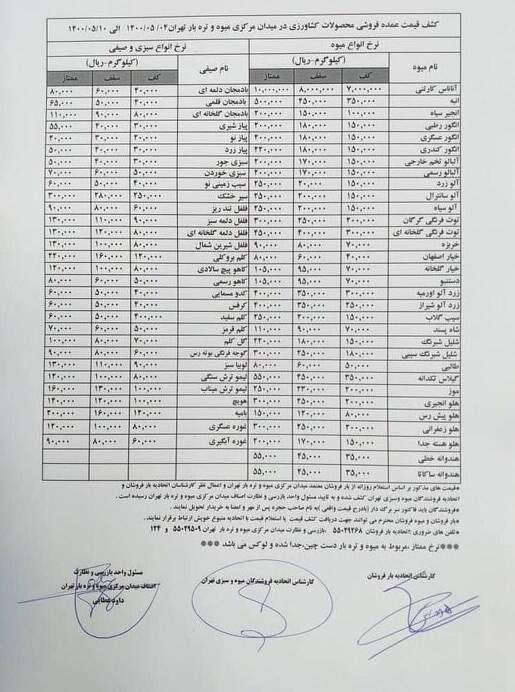 کشف قیمت عمده فروشی محصولات کشاورزی در میدان مرکزی میوه و تره بار تهران ۱۴۰۰/۰۵/۰۴ الی ۱۴۰۰/۰۵/۱۰
نرخ انواع میوه نرخ انواع سبزی و صیفی
نام میوه (کیلوگرم-ریال) نام صیفی (کیلوگرم-ریال)
کف سقف ممتاز کف سقف ممتاز
آناناس کارتنی ۷,۰۰۰,۰۰۰ ۸,۰۰۰,۰۰۰ ۱۰,۰۰۰,۰۰۰ بادمجان دلمه ای ۴۰,۰۰۰ ۶۰,۰۰۰ ۸۰,۰۰۰
انبه ۳۵۰,۰۰۰ ۴۵۰,۰۰۰ ۵۰۰,۰۰۰ بادمجان قلمی ۴۰,۰۰۰ ۵۰,۰۰۰ ۶۵,۰۰۰
انجیر سیاه ۱۰۰,۰۰۰ ۱۵۰,۰۰۰ ۲۰۰,۰۰۰ بادمجان گلخانه ای ۸۰,۰۰۰ ۹۰,۰۰۰ ۱۱۰,۰۰۰
انگور رطبی ۱۵۰,۰۰۰ ۱۸۰,۰۰۰ ۲۰۰,۰۰۰ پیاز شیری ۲۰,۰۰۰ ۴۰,۰۰۰ ۵۵,۰۰۰
انگور عسگری ۱۵۰,۰۰۰ ۱۸۰,۰۰۰ ۲۰۰,۰۰۰ پیاز نو ۲۰,۰۰۰ ۳۰,۰۰۰ ۴۰,۰۰۰
انگور کندری ۱۵۰,۰۰۰ ۱۸۰,۰۰۰ ۲۲۰,۰۰۰ پیاز زرد ۳۰,۰۰۰ ۴۰,۰۰۰ ۵۰,۰۰۰
آلبالو تخم خارجی ۱۵۰,۰۰۰ ۱۷۰,۰۰۰ ۲۰۰,۰۰۰ سبزی جور ۳۰,۰۰۰ ۴۰,۰۰۰ ۵۰,۰۰۰
آلبالو رسمی ۱۵۰,۰۰۰ ۱۷۰,۰۰۰ ۲۰۰,۰۰۰ سبزی خوردن ۵۰,۰۰۰ ۶۰,۰۰۰ ۷۰,۰۰۰
آلو زرد ۱۵۰,۰۰۰ ۲۰,۰۰۰ ۲۵۰,۰۰۰ سیب زمینی نو ۴۰,۰۰۰ ۵۰,۰۰۰ ۶۰,۰۰۰
آلو سانترال ۱۵۰,۰۰۰ ۲۰۰,۰۰۰ ۲۵۰,۰۰۰ سیر خشک ۲۵۰,۰۰۰ ۲۸۰,۰۰۰ ۳۰۰,۰۰۰
آلو سیاه ۱۰۰,۰۰۰ ۱۵۰,۰۰۰ ۲۰۰,۰۰۰ فلفل تند ریز ۶۰,۰۰۰ ۸۰,۰۰۰ ۹۰,۰۰۰
توت فرنگی گرگان ۲۰۰,۰۰۰ ۲۵۰,۰۰۰ ۳۰۰,۰۰۰ فلفل دلمه سبز ۹۰,۰۰۰ ۱۱۰,۰۰۰ ۱۳۰,۰۰۰
توت فرنگی گلخانه ای ۲۰۰,۰۰۰ ۳۰۰,۰۰۰ ۴۰۰,۰۰۰ فلفل دلمه گلخانه ای ۸۰,۰۰۰ ۱۲۰,۰۰۰ ۱۳۰,۰۰۰
خربزه ۷۰,۰۰۰ ۸۰,۰۰۰ ۹۰,۰۰۰ فلفل شیرین شمال ۸۰,۰۰۰ ۱۰۰,۰۰۰ ۱۳۰,۰۰۰
خیار اصفهان ۴۰,۰۰۰ ۶۰,۰۰۰ ۸۰,۰۰۰ کلم بروکلی ۱۲۰,۰۰۰ ۱۶۰,۰۰۰ ۲۲۰,۰۰۰
خیار گلخانه ۷۰,۰۰۰ ۹۵,۰۰۰ ۱۰۵,۰۰۰ کاهو پیچ سالادی ۸۰,۰۰۰ ۱۰۰,۰۰۰ ۱۲۰,۰۰۰
دستنبو ۷۰,۰۰۰ ۹۵,۰۰۰ ۱۰۵,۰۰۰ کاهو رسمی ۵۰,۰۰۰ ۶۰,۰۰۰ ۸۰,۰۰۰
زرد آلو اورمیه ۲۰۰,۰۰۰ ۳۰۰,۰۰۰ ۴۰۰,۰۰۰ کدو مسمایی ۴۰,۰۰۰ ۵۰,۰۰۰ ۶۰,۰۰۰
زرد آلو شیراز ۲۵۰,۰۰۰ ۳۵۰,۰۰۰ ۴۰۰,۰۰۰ کرفس ۴۰,۰۰۰ ۵۰,۰۰۰ ۶۰,۰۰۰
سیب گلاب ۱۵۰,۰۰۰ ۲۰۰,۰۰۰ ۲۵۰,۰۰۰ کلم سفید ۴۰۰,۰۰۰ ۵۰,۰۰۰ ۶۰,۰۰۰
شاه پسند ۷۰,۰۰۰ ۹۰,۰۰۰ ۱۱۰,۰۰۰ کلم قرمز ۵۰,۰۰۰ ۶۰,۰۰۰ ۷۰,۰۰۰
شلیل شبرنگ ۱۵۰,۰۰۰ ۱۸۰,۰۰۰ ۲۲۰,۰۰۰ گل کلم ۷۰,۰۰۰ ۸۰,۰۰۰ ۱۰۰,۰۰۰
شلیل شبرنگ سیبی ۱۸۰,۰۰۰ ۲۵۰,۰۰۰ ۳۰۰,۰۰۰ گوجه فرنگی بوته رس ۶۰,۰۰۰ ۸۰,۰۰۰ ۹۰,۰۰۰
طالبی ۵۰,۰۰۰ ۶۰,۰۰۰ ۸۰,۰۰۰ لوبیا سبز ۹۰,۰۰۰ ۱۱۰,۰۰۰ ۱۳۰,۰۰۰
گیلاس تکدانه ۳۵۰,۰۰۰ ۴۵۰,۰۰۰ لیمو ترش سنگی ۸۰,۰۰۰ ۱۰۰,۰۰۰ ۱۲۰,۰۰۰
موز ۲۰۰,۰۰۰ ۲۳۰,۰۰۰ ۲۵۰,۰۰۰ لیمو ترش میناب ۱۰۰,۰۰۰ ۱۳۰,۰۰۰ ۱۶۰,۰۰۰
هلو انجیری ۲۰۰,۰۰۰ ۲۵۰,۰۰۰ ۳۰۰,۰۰۰ هویج ۱۰۰,۰۰۰ ۱۲۰,۰۰۰ ۱۴۰,۰۰۰
هلو پیش رس ۸۰,۰۰۰ ۱۲۰,۰۰۰ ۱۵۰,۰۰۰ بامیه ۱۲۰,۰۰۰ ۱۶۰,۰۰۰ ۲۰۰,۰۰۰
هلو زعفرانی ۲۰۰,۰۰۰ ۲۵۰,۰۰۰ ۳۰۰,۰۰۰ غوره عسگری ۸۰,۰۰۰ ۱۰۰,۰۰۰ ۱۲۰,۰۰۰
هلو هسته جدا ۱۵۰,۰۰۰ ۱۷۰,۰۰۰ ۲۰۰,۰۰۰ غوره آبگیری ۶۰,۰۰۰ ۸۰,۰۰۰ ۹۰,۰۰۰
هندوانه خطی ۳۵,۰۰۰ ۴۵,۰۰۰ ۵۵,۰۰۰
هندوانه ساکاتا ۳۵,۰۰۰ ۴۵,۰۰۰ ۵۵,۰۰۰
*قیمت های مذکور بر اساس استعلام روزانه از بار فروشان معتمد میدان مرکزی میوه و تره بار تهران و اعمال نظر کارشناسان اتحادیه بار فروشان و
اتحادیه فروشندگان میوه وسبزی تهران کشف شده و به تایید مسئول واحد بازرسی و نظارت اصناف میدان مرکزی میوه و تره بار تهران رسیده است .
*فروشندگان باید فاکتور سر برگ دار (بادرج قیمت واقعی )به نام صاحب حجره پس از مهر و امضا به خریدار تحویل نمایند.
*بار فروشان و میوه فروشان محترم می توانند جهت دریافت کشف قیمت یا استعلام قیمت با اتحادیه متبوع خویش ارتباط برقرار نمایند.
*تلفن های ضروری :اتحادیه بار فروشان ۵۵۰۲۹۲۶۸ بازرسی و نظارت میدان مرکزی میوه و تره بار تهران ۵۵۰۲۹۵۰۹ و ۱۲۴
***نرخ ممتاز مربوط به میوه و تره بار دست چین،جدا شده و لوکس می باشد ***
کارشناس اتحادیه بار فروشان کارشناس اتحادیه فروشندگان میوه و سبزی تهران مسئول واحد بازرسی و نظارت
اصناف میدان مرکزی میوه و تره بار تهران
داود عطایی